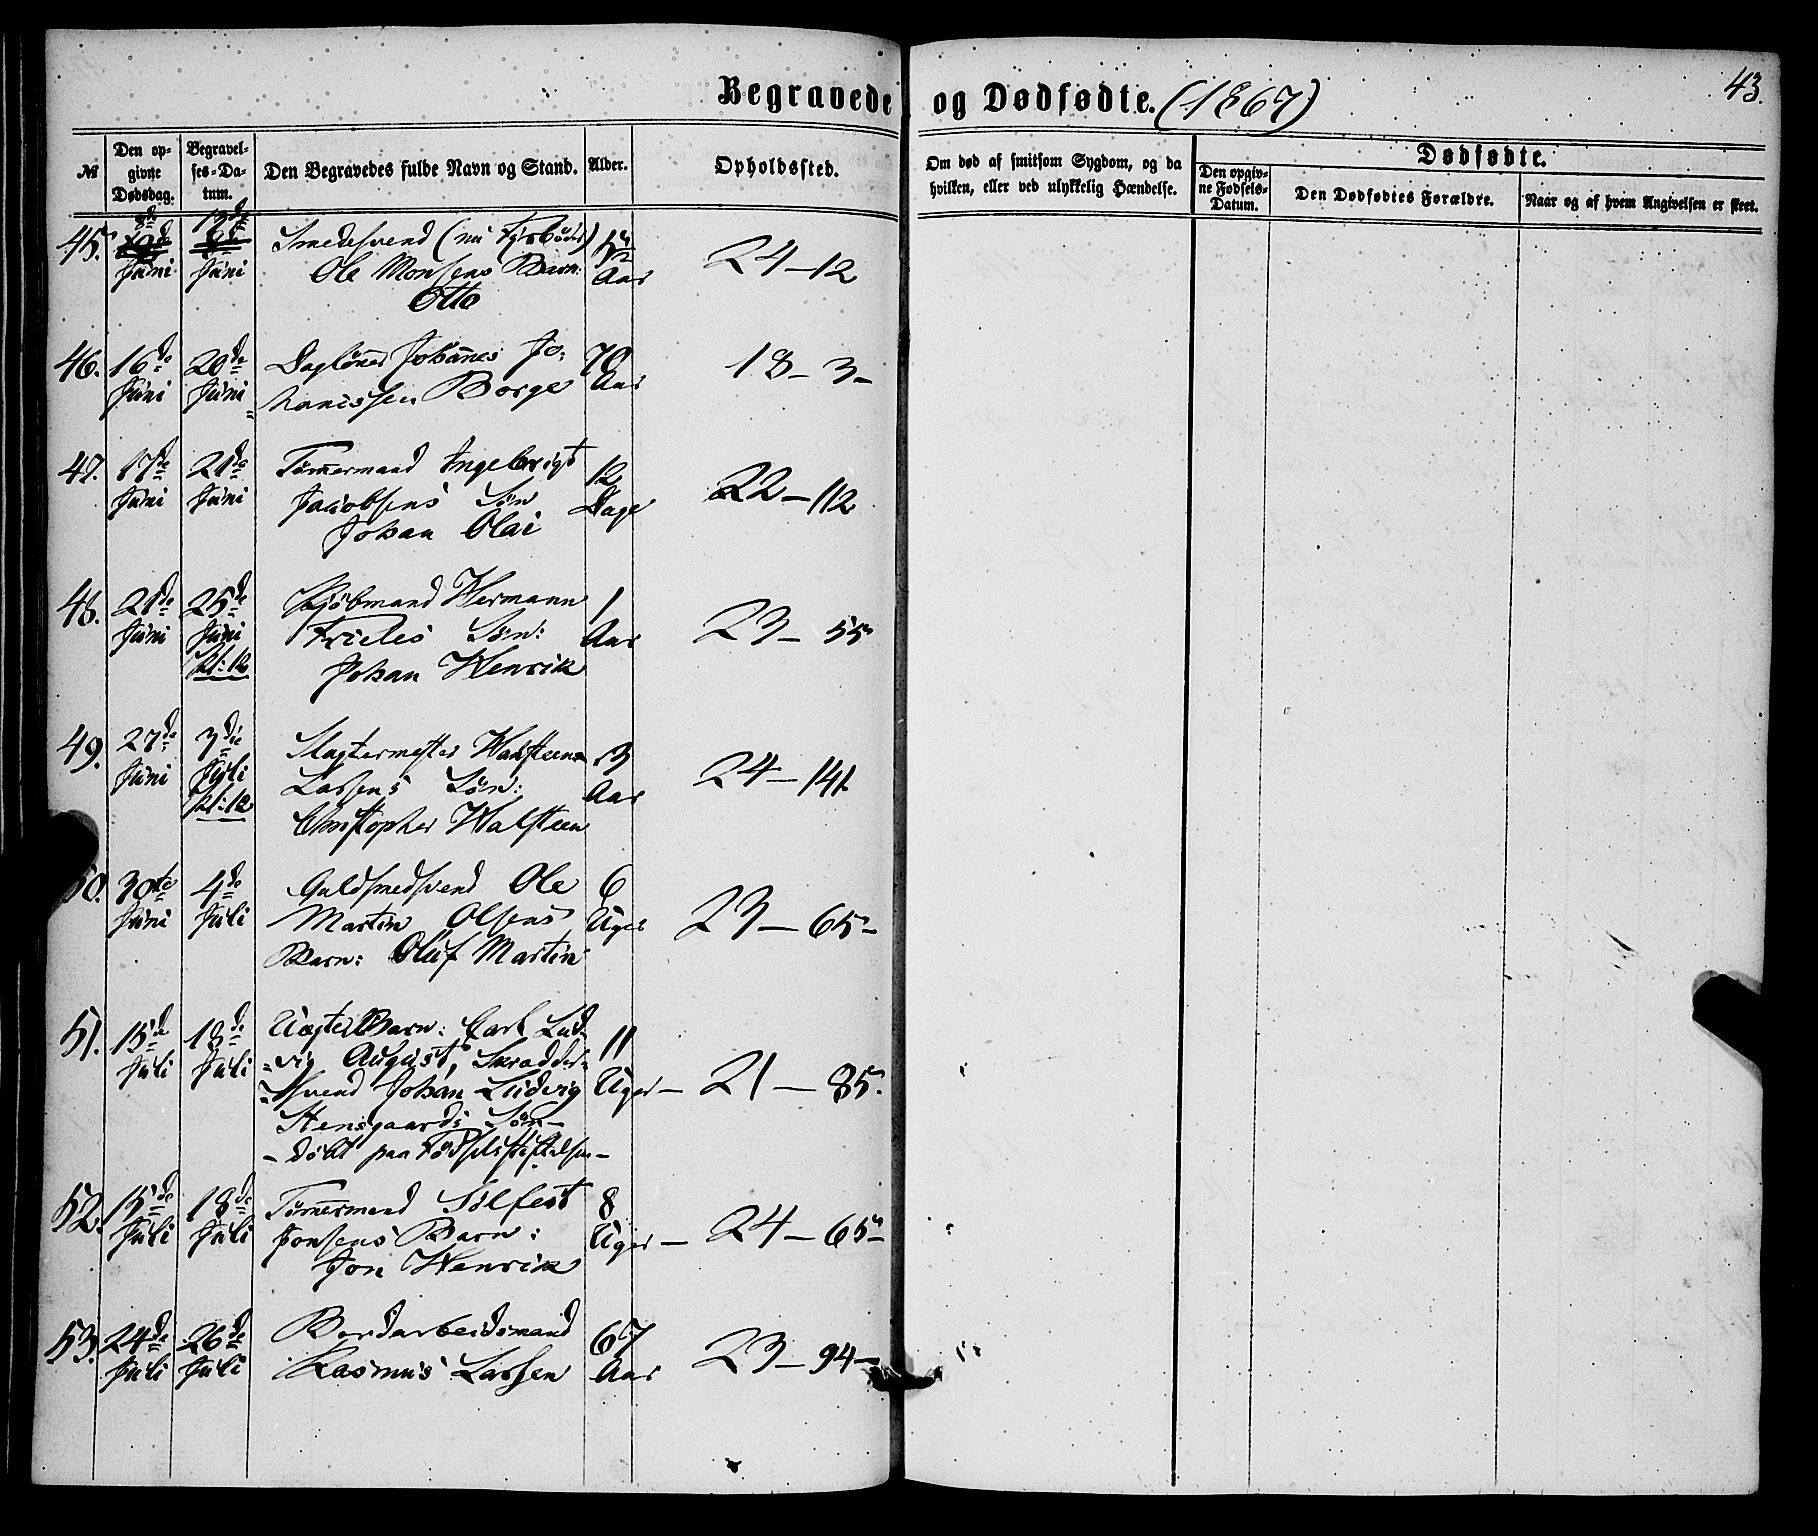 43.
Begravede og Dødfødte. (1867)
№
Den op-
givne
Dødsdag.
Begravel-
ses-Da-
tum.
Den Begravedes fulde Navn og Stand.
Alder.
Opholdssted.
Om død af smitsom Sygdom, og da
hvilken, eller ved ulykkelig Hændelse.
Dødfødte.
Den opgiv-
ne Fødsels-
Datum.
Den Dødfødtes Forældre.
Naar og af hvem Angivelsen er skeet.
45. 8de Juni 13de Juni
Smedesvend (nu Fyrbøder)
Ole Monsens Barn:
Otto
Aar
24-12
46. 16de Juni 20de Juni
Daglönner Johannes Jo:
hanissen Borge
70 Aar
18-3-
47. 17de Juni 21de Juni
Tömmermand Ingebrigt
Jacobsens Sön
Johan Olai
12 Dage
22-112
48. 21de Juni 25de Juni kl: 12
Kjöbmand Hermann
Frieles Sön:
Johan Henrik
1 Aar
23-55
49. 27de Juni 3die Juli kl: 12
Slagtermester Walsteen
Larsens Sön:
Christopher Walsteen
3 Aar
24-141
50. 30te Juni 4de Juli
Guldsmedsvend Ole
Martin Olsens
Barn: Oluf Martin
6 Uger
23-65-
51. 15de Juli 18de Juli
Uægte Barn: Carl Lud-
-vig August, Skrædder-
-svend Johan Ludvig
Stensgaards Sön-
-döbt paa Födselsstiftelsen-
11 Uger-
21-85.
52. 15de Juli 18de Juli
Tömmermand Silfest
Jonsens Barn:
Jon Henrik
8 Uger-
24-65-
53. 24de Juli 26de Juli
Bordarbeidsmand
Rasmus Larsen
67 Aar
23-94-